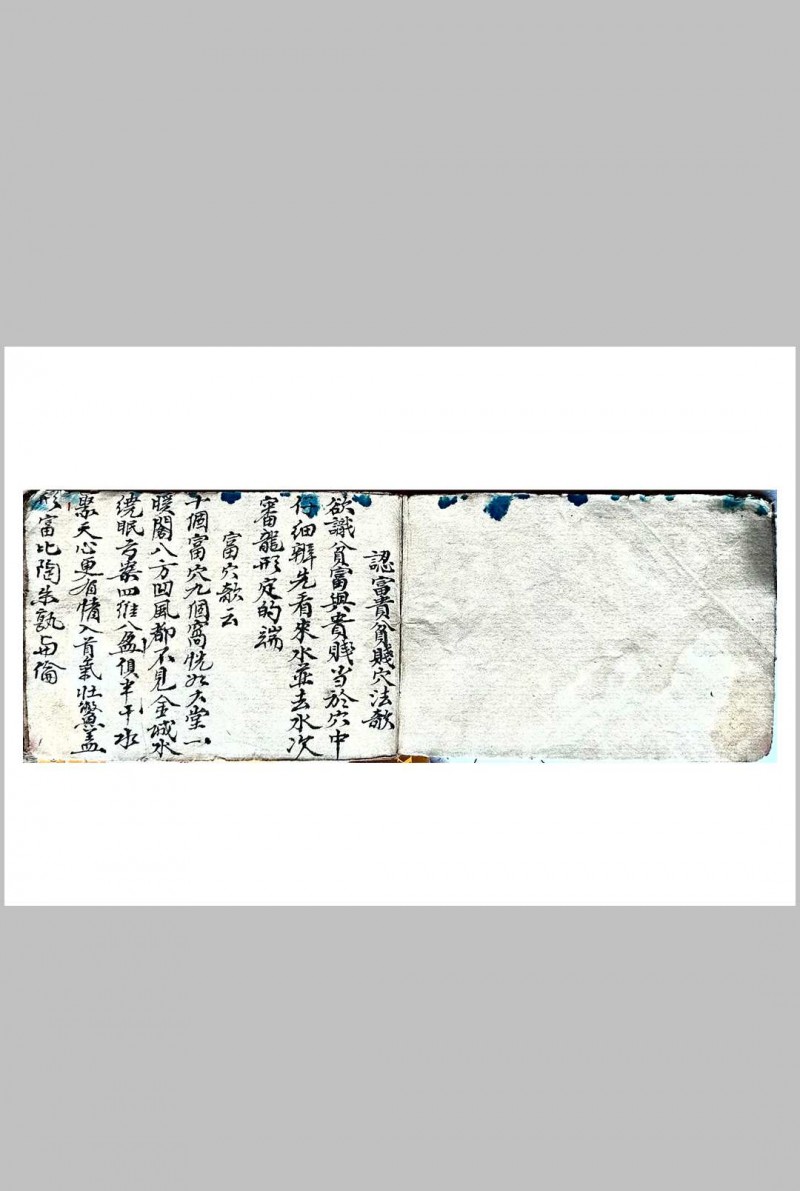 認富貴貧賤穴法歌
欲識貧富與貴賤当於穴中
仔細辨先看來水並去水次
審龍形定的端
富穴歌云
十個富穴九個窩恍如大堂一
暖閣八方回風都不見金城水
繞眠弓案四維八盈倶半千水
聚天心更有情入首氣壯鱉盖
形富比陶朱孰与倫